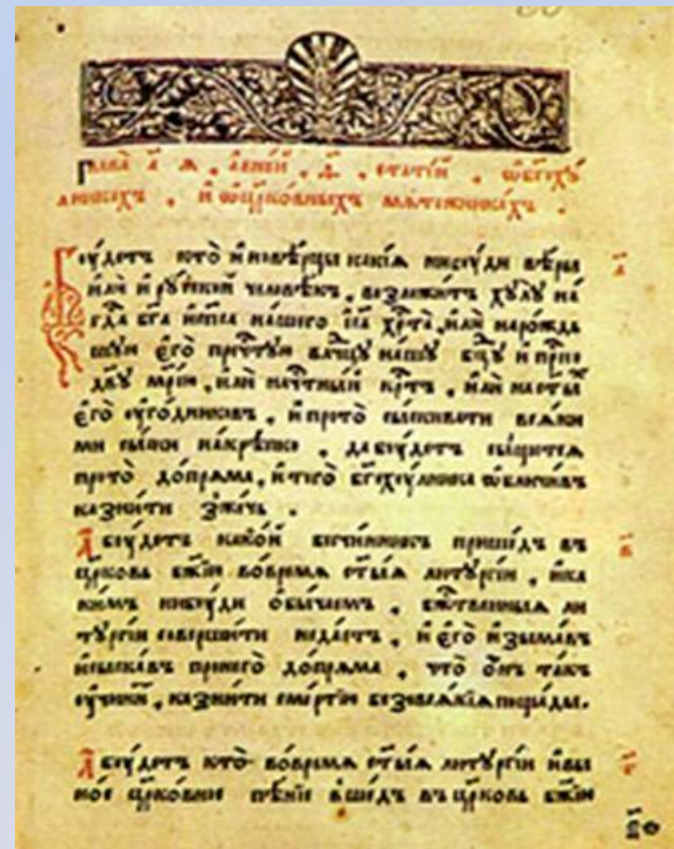 глава а҃ я , в не́й , д҃ , стати́и , ѡ бг҃оху́
лникехъ , и҆ ѡ цр҃ко́вныхъ мяте́жникахъ .
Бꙋ́детъ кто̀ и҆нове́рцы какі́я нибꙋ́ди ве́ры
и҆лѝ и҆ рꙋ́ский человѣ́къ , возложи́тъ хꙋлꙋ̀ на́
гд҃а бг҃а и҆ сп҃са на́шего і҆с҃а хр҃та̀ , и҆лѝ на рожд
шꙋю є҆го̀ пречⷭ҇тꙋю влⷣчцꙋ на́шꙋ бц҃ꙋ и҆ прⷭ҇но
дв҃ꙋ мр҃і́ю , и҆лѝ на чⷭ҇тны́й крⷭ҇тъ , и҆лѝ на ст҃ы́хъ
є҆го̀ ᲂу҆го́дниковъ , и҆ про то̀ сы́скивати вся́ки
ми сы́ски на крѣ́пко , да бꙋ́детъ сы́щется
про то̀ до́пряма , и҆ того̀ бг҃охꙋ́лника ѡ҆бличи́въ
казни́ти зже́чь .
в҃
А҆ бꙋ́детъ како́й безчи́нникъ прише́дъ въ
цр҃ковь бж҃ію во́время ст҃ы́я литꙋргі́и , и҆ ка
ки́мъ нибꙋ́ди ѻ҆бы́чаемъ , бжⷭ҇твенныя ли
тꙋргі́и соверши́ти не да́стъ , и҆ є҆го̀ и҆зыма́въ
и҆ сыска́въ про него̀ до́пряма , что̀ ѻ҆́нъ та́къ
ᲂу҆чини́тъ , казни́ти сме́ртію безо вся́кія поща́ды .
А҆ бꙋ́детъ кто̀ во́время ст҃ы́я литꙋргі́и и҆ в ы
но́е цр҃ко́вное пѣ́ніе вше́дъ въ цр҃ковь бж҃ію